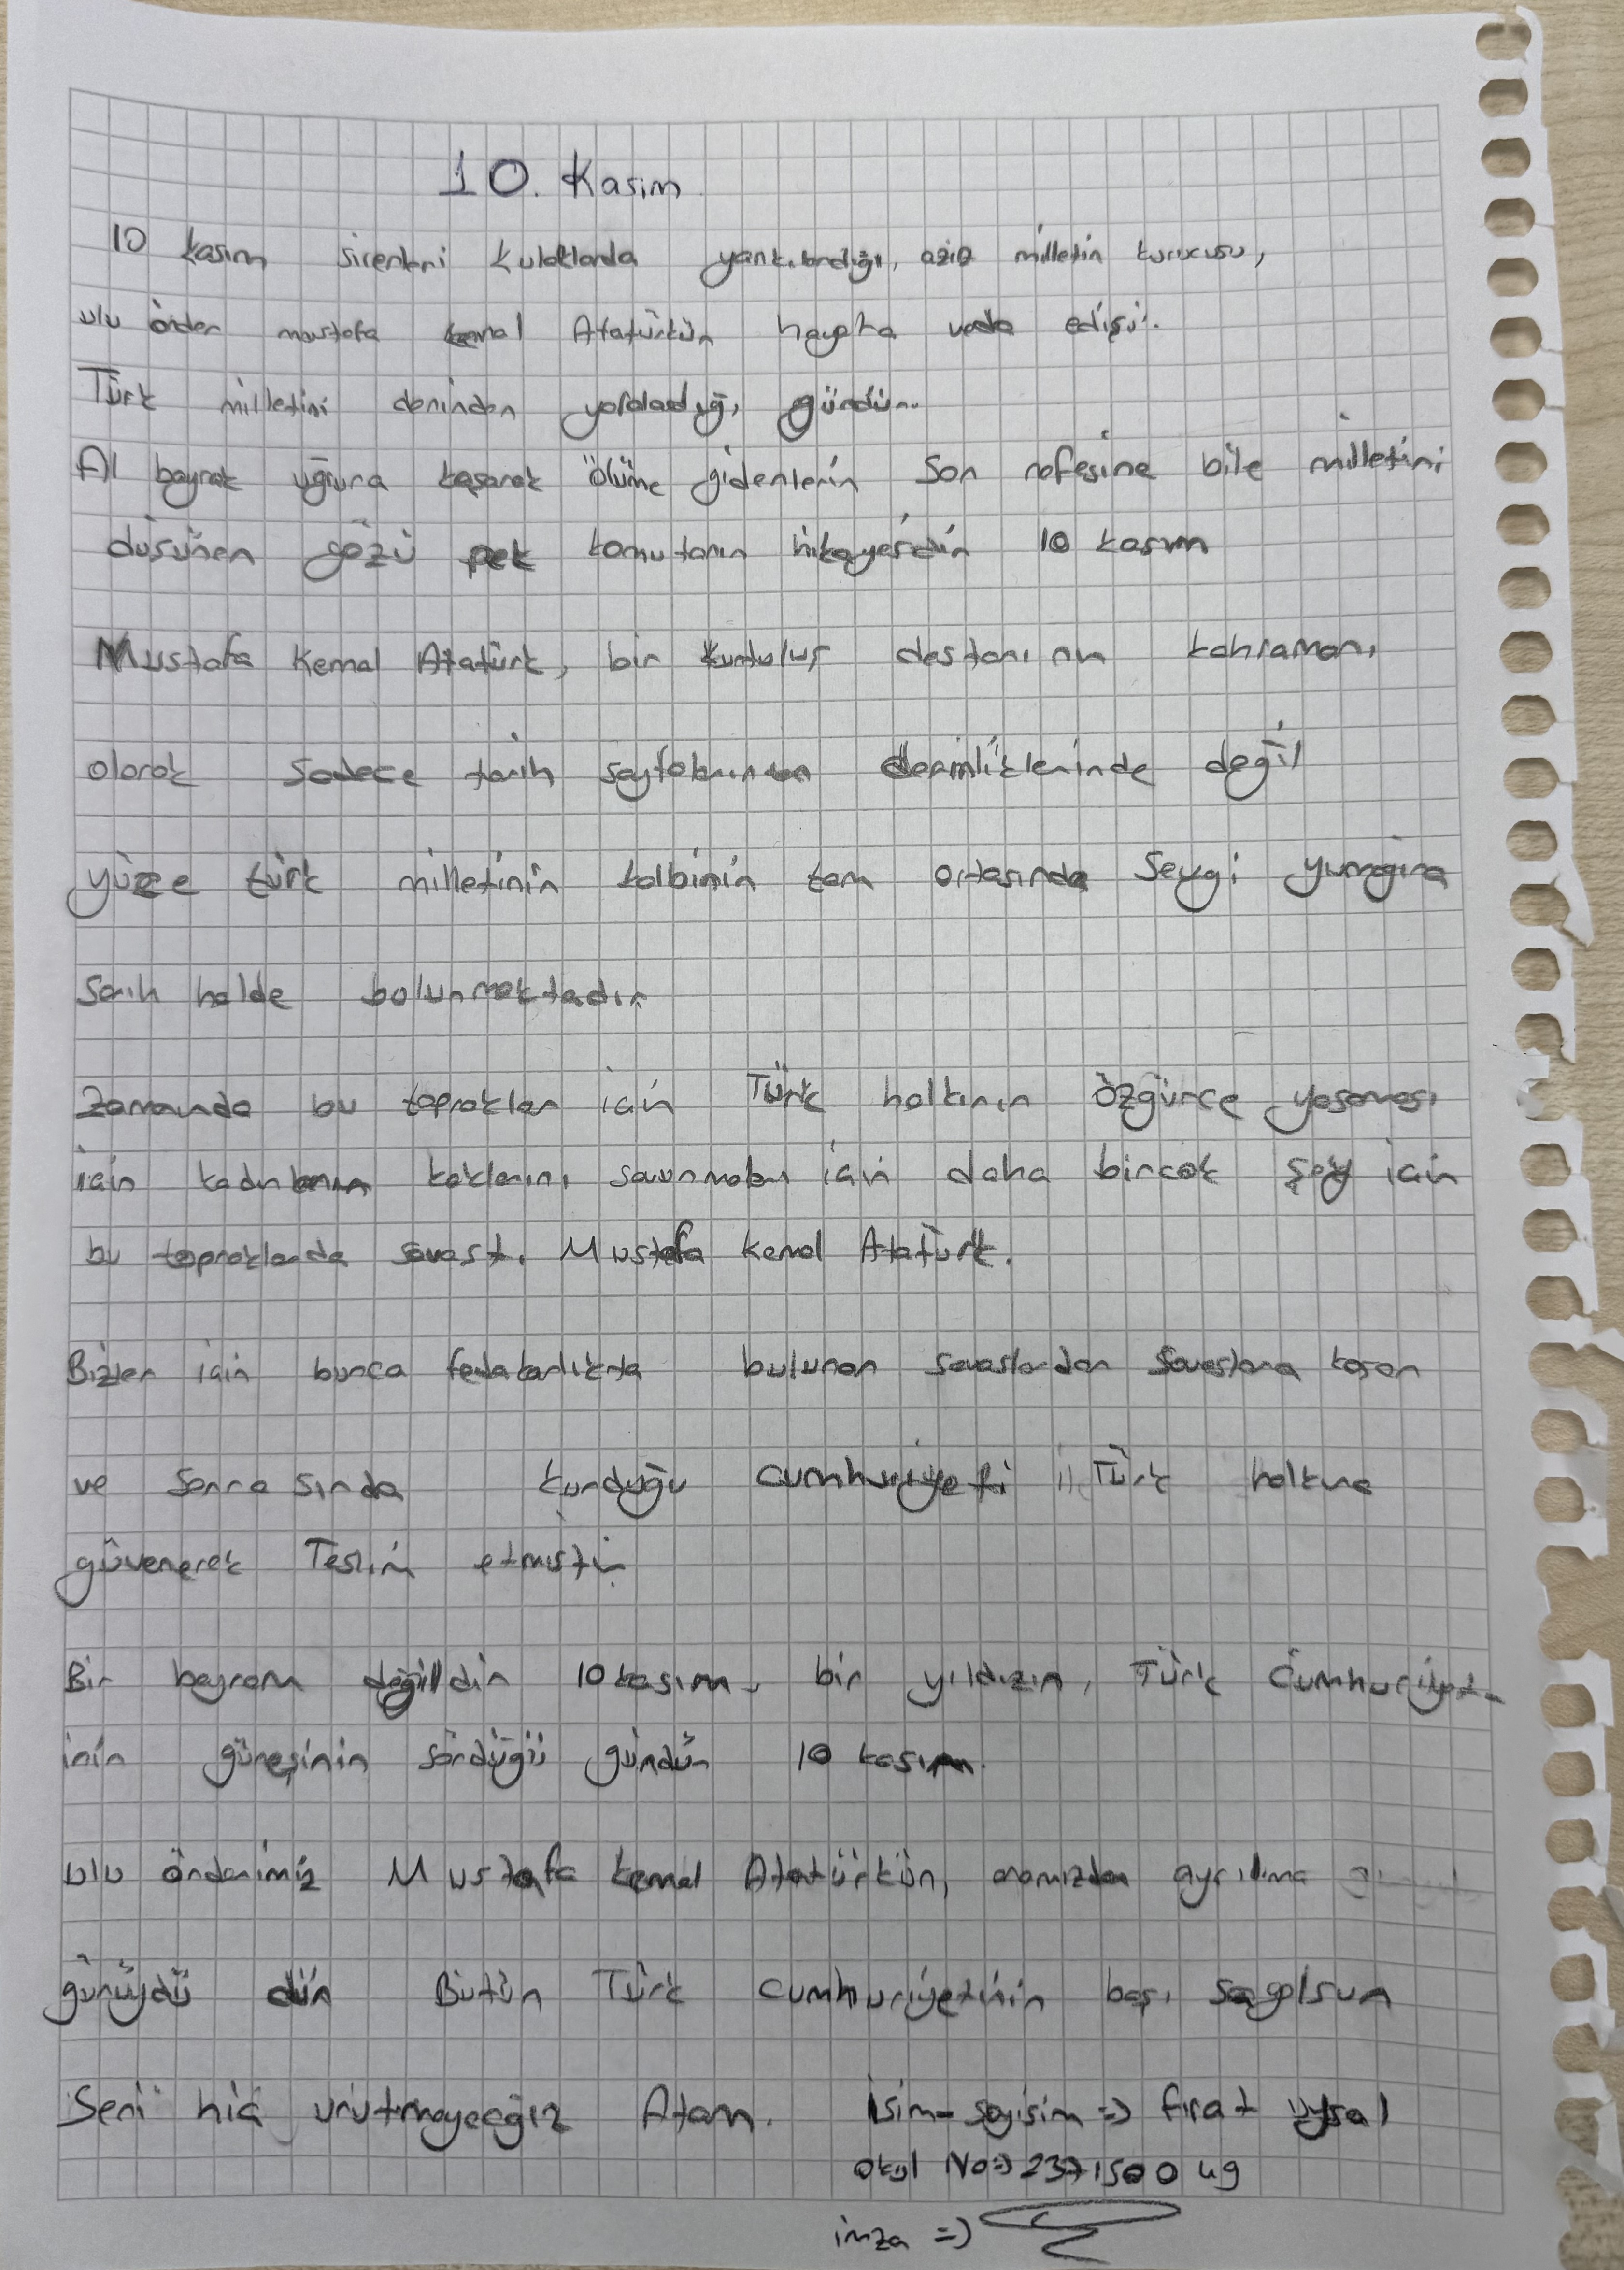 10. Kasım
10 kasım sirenleri kulaklarda yankılandığı, aziz milletin kurucusu,
ulu önder mustafa kemal Atatürkün hayata veda edişi.
Türk milletini derinden yaraladığı gündür.
Al bayrak uğruna koşarak ölüme gidenlerin Son nefesine bile milletini
düşünen gözü pek komutanın hikayesidir 10 kasım
Mustafa Kemal Atatürk, bir kurtuluş destanının kahramanı
olarak sadece tarih sayfalarının derinliklerinde değil
yüce türk milletinin kalbinin tam ortasında sevgi yumağına
Sarılı halde bulunmaktadır
Zamanında bu topraklar icin Türk halkının özgürce yaşaması
icin kadınların haklarını savunmaları icin daha bircok şey icin
bu topraklarda savastı Mustafa Kemal Atatürk.
Bizler icin bunca fedakarlıkta bulunan savaslardan savaslara koşan
ve sonrasında kurduğu cumhuriyeti Türk halkına
güvenerek Teslim etmistir
Bir bayram değildir 10 kasım, bir yıldızın, Türk Cumhuriyet-
inin güneşinin söndüğü gündür 10 kasım.
ulu önderimiz Mustafa kemal Atatürkün, aramızdan ayrılma
günüydü dün Bütün Türk cumhuriyetinin başı sagolsun
Seni hiç unutmayacağız Atam. isim-soyisim => fırat uysal
okul No=> 237150049
imza =>